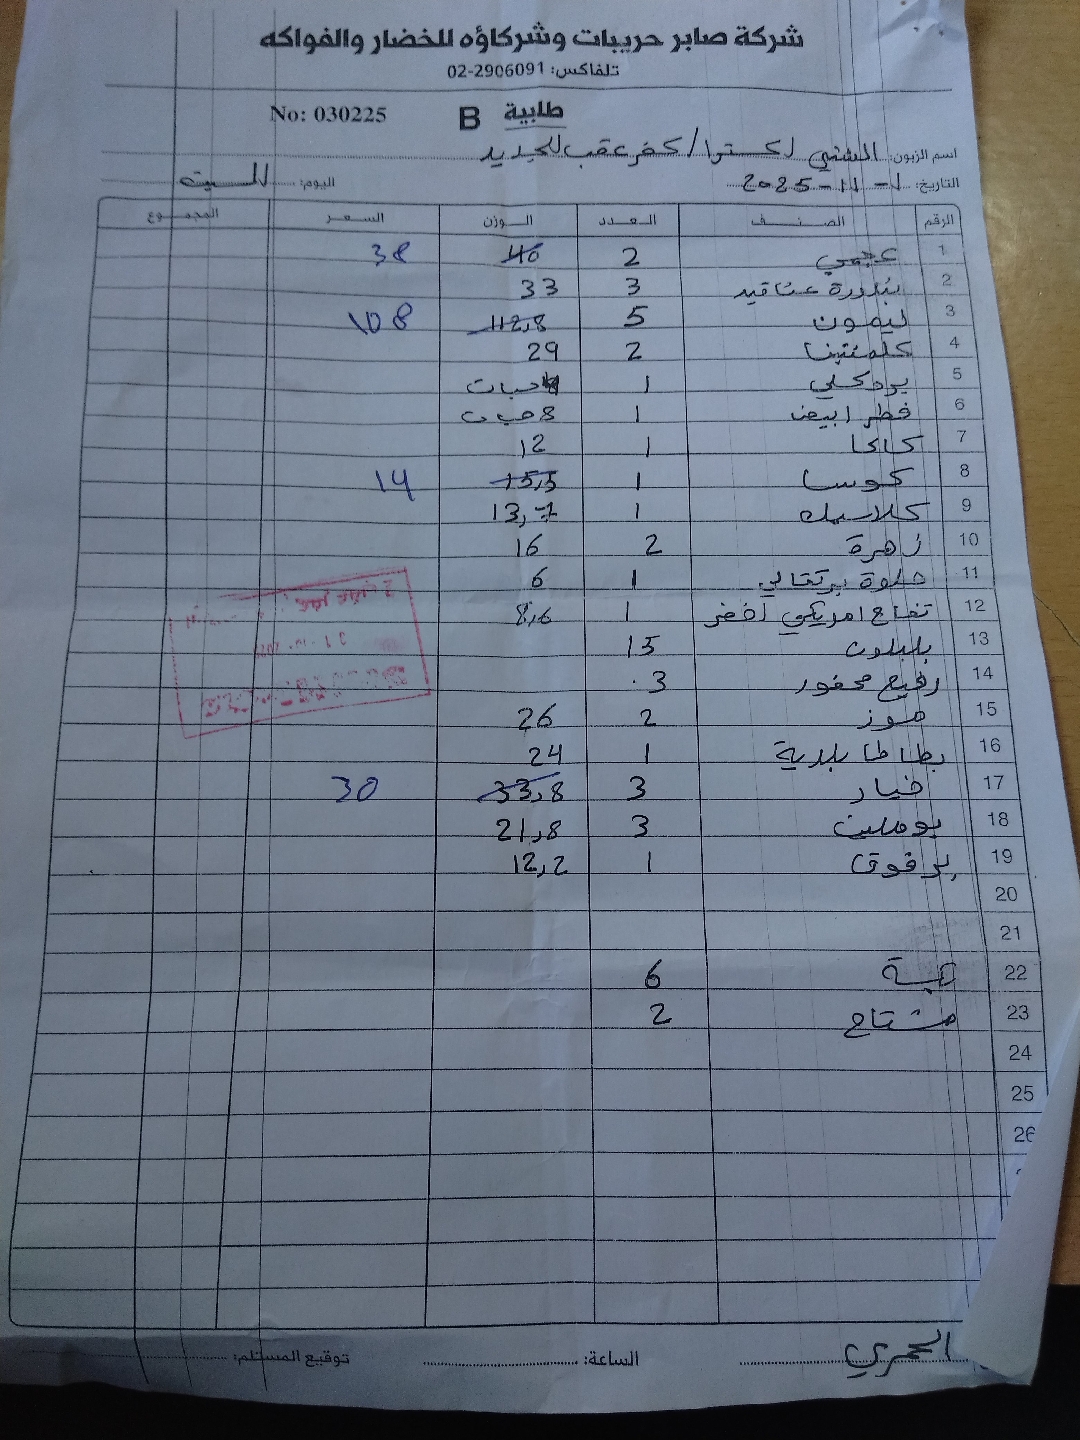 شركة صابر حريبات وشركاؤه للخضار والفواكه
تلفاكس: 02-2906091
No: 030225 B طلبية
اسم الزبون: الشني اكسترا / كفر عقب الجديد
التاريخ: 1-11-2025 اليوم: السبت
الرقم الصنف العدد الوزن السعر المجموع
1 عجمي 2 40 38
2 بندورة عناقيد 3 33
3 ليمون 5 112,8 108
4 كلمنتينا 2 29
5 بروكلي 1 حبات
6 فطر ابيض 1 8 حبات
7 كاكا 1 12
8 كوسا 1 15,5 14
9 كلاسيك 1 13,7
10 زهرة 2 16
11 حلوة برتقالي 1 6
12 تفاح امريكي اخضر 1 8,6
13 بلبلون 15
14 رفيع محفور 3
15 موز 2 26
16 بطاطا بلدية 1 24
17 خيار 3 33,8 30
18 بوملي 3 21,8
19 برقوق 1 12,2
20
21
22 6
23 مشتاح 2
24
25
26
الساعة: توقيع المستلم: